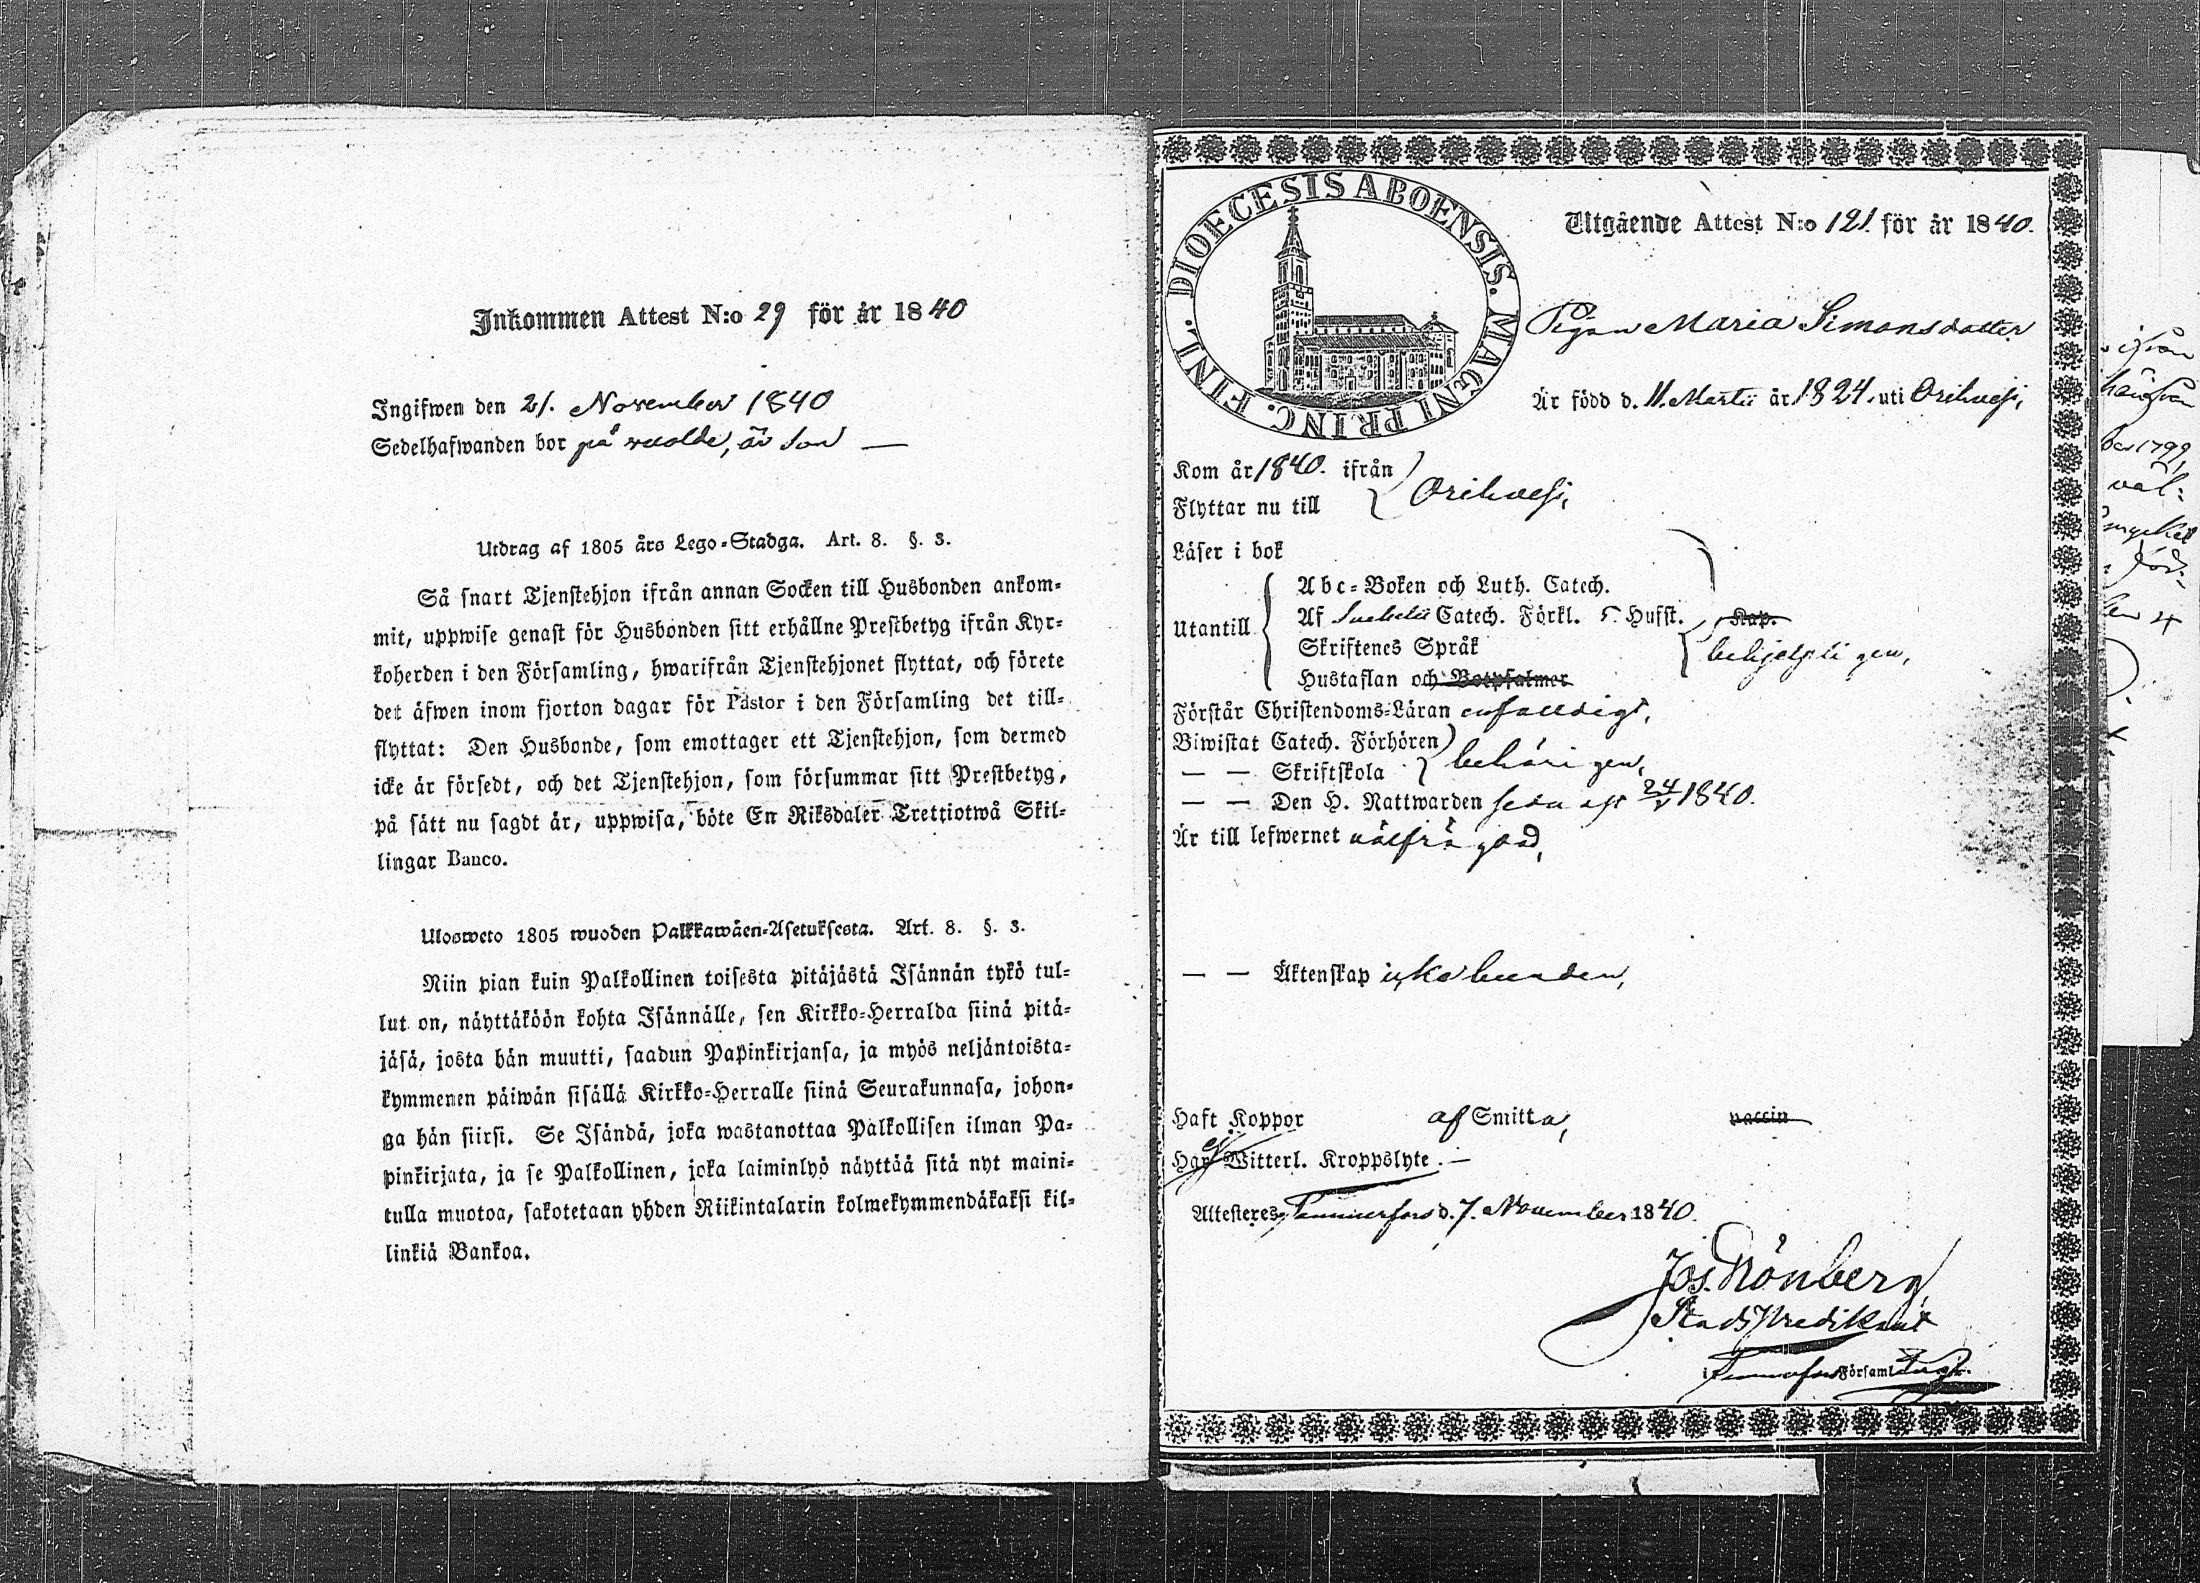 Inkommen Attest N:o 29 för år 1840
Ingifwen den 21. November 1840
Sedelhafwanden bor på
Utdrag af 1805 års Lego-Stadga. Art. 8. §. 3.
Så snart Tjenstehjon ifrån annan Socken till Husbonden ankom-
mit, uppwise genast för Husbonden sitt erhållne Prestbetyg ifrån Kyr-
koherden i den Församling, hwarifrån Tjenstehjonet flyttat, och förete
det äfwen inom fjorton dagar för Pastor i den Församling det till-
flyttat: Den Husbonde, som emottager ett Tjenstehjon, som dermed
icke är försedt, och det Tjenstehjon, som försummar sitt Prestbetyg,
på sätt nu sagdt är, uppwisa, böte En Riksdaler Trettiotwå Skil-
lingar Banco.
Ulosweto 1805 wuoden Palkkawäen-Asetuksesta. Art. 8. §. 3.
Niin pian kuin Palkollinen toisesta pitäjästä Isännän tykö tul-
lut on, näyttäköön kohta Isännälle, sen Kirkko-Herralda siinä pitä-
jäsä, josta hän muutti, saadun Papinkirjansa, ja myös neljäntoista-
kymmenen päiwän sisällä Kirkko-Herralle siinä Seurakunnasa, johon-
ga hän siirsi. Se Isändä, joka wastanottaa Palkollisen ilman Pa-
pinkirjata, ja se Palkollinen, joka laiminlyö näyttää sitä nyt maini-
tulla muotoa, sakotetaan yhden Riikintalarin kolmekymmendäkaksi kil-
linkiä Bankoa.
DIOECESIS ABOENSIS. MAGNI PRINC. FINL.
Utgående Attest N:o 121. för år 1840.
Pigan Maria Simonsdotter
Är född d. 11. Martii år 1824. uti Orihvesi,
Kom år 1840. ifrån
Flyttar nu till Orihvesi,
Läser i bok
Utantill
Abc-Boken och Luth. Catech.
Af Svebelii Catech. Förkl. 5 Hufst. Kap.
Skriftenes Språk behjelpligen,
Hustaflan och Botpsalmer
Förstår Christendoms-Läran enfaldigt,
Biwistat Catech. Förhören
— — Skriftskola behörigen,
— — Den H. Nattwarden sedan 24/5 1840.
Är till lefwernet välfrägdad,
— — Äktenskap icke bunden,
Haft Koppor af Smitta, vaccin
Har ej Witterl. Kroppslyte. —
Attesteres Tammerfors d. 7. November 1840.
Jos. Grönberg
Stads Predikant
i Tammerfors Församling.
ifrån
ber 1799,
väl:
mycket